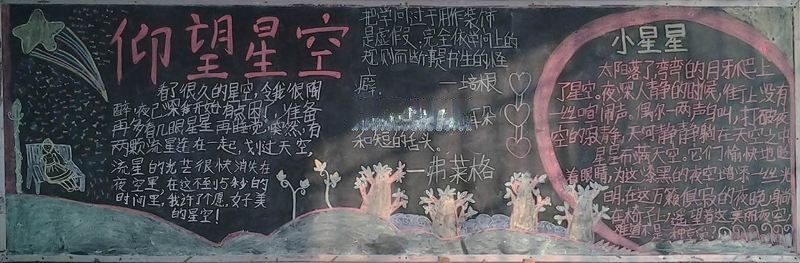 仰望星空
看了很久的星空,令我很陶
醉,夜已深我开始有点困了,准备
再多看几眼星星再睡觉,突然,有
两颗流星连在一起,划过天空,
流星的光芒很快消失在
夜空里,在这不到5秒的
时间里,我许了个愿,好美
的星空!
把学问过于用作装饰
是虚假;完全依学问上的
规则而断事是书生的怪
癖。
—培根
耳朵
和短的舌头。
—弗莱格
小星星
太阳落了,弯弯的月牙爬上
了星空。夜深人静的时候,街上没有
一丝喧闹声。偶尔一两声的叫,打破夜
空的寂静,天河静静躺在天空当中
星星布满天空。它们愉快地眨
着眼睛,为这漆黑的夜空增添一丝光
明。在这万籁俱寂的夜晚,躺
在椅子上,遥望着这美丽夜空,
难道不是一种